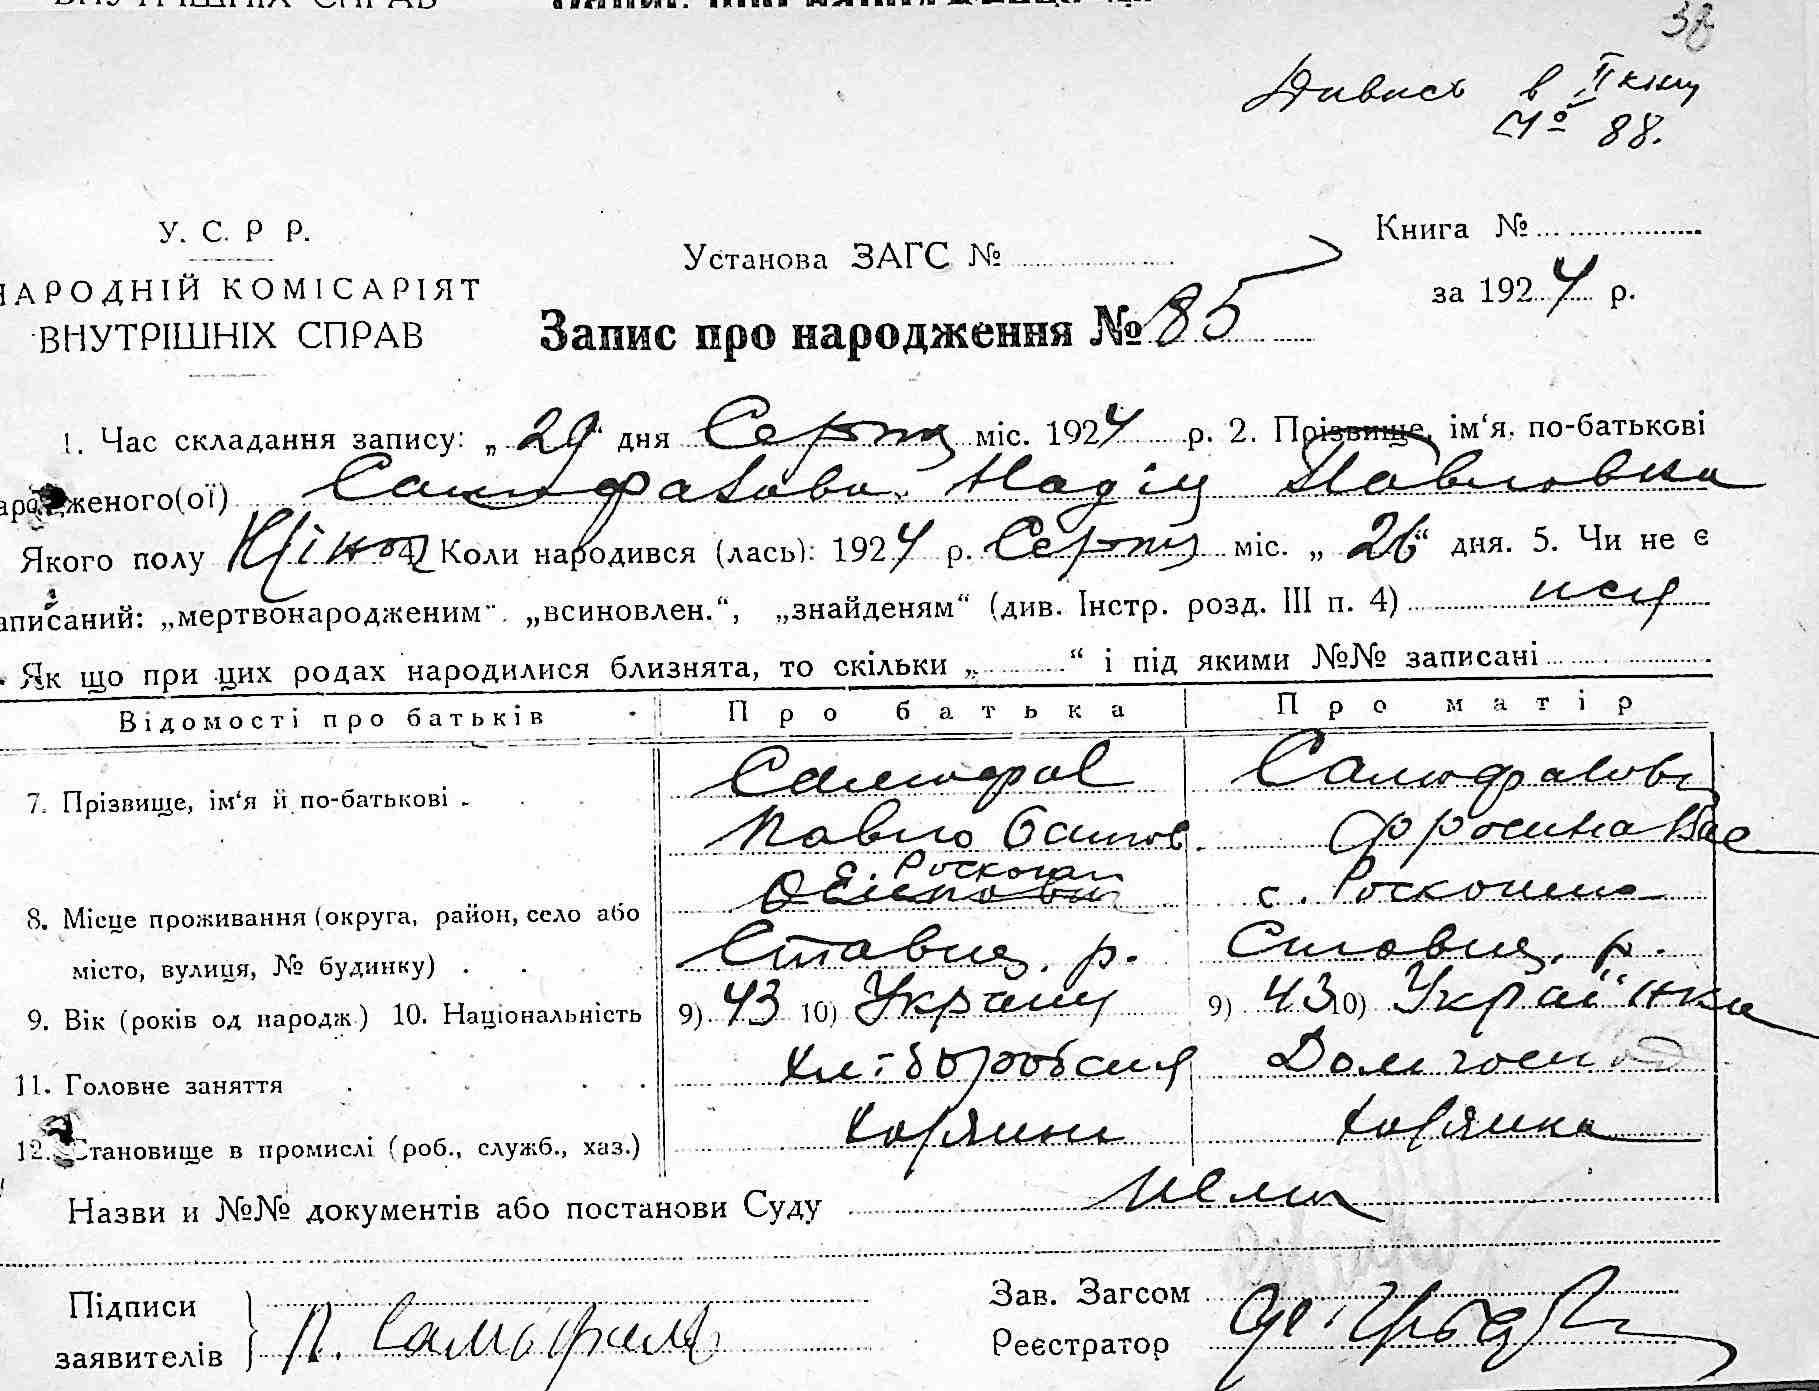 38
Дивись в II кни
№ 88.
У. С. Р Р.
НАРОДНІЙ КОМІСАРІЯТ
ВНУТРІШНІХ СПРАВ
Установа ЗАГС №
Книга №
за 1924 р.
Запис про народження № 85
1. Час складання запису: „29“ дня Серпн міс. 1924 р. 2. Прізвище, ім‘я, по-батькові
народженого(ої) Самофалова Надія Павловна
Якого полу Жіноч 4. Коли народився (лась): 1924 р. Серпня міс. „26“ дня. 5. Чи не є
записаний: „мертвонародженим“ „всиновлен.“, „знайденям“ (див. Інстр. розд. III п. 4)
Як що при цих родах народилися близнята, то скільки „ “ і під якими №№ записані
Відомості про батьків Про батька Про матір
7. Прізвище, ім‘я й по-батькові
Самофал Самофалова
Павло Фросина Вас
8. Місце проживання (округа, район, село або
с. Роскопан с. Роскопана
місто, вулиця, № будинку) Ставищ. р. Ставищ. р.
9. Вік (років од народж.) 10. Національність 9) 43 10) Украинц 9) 43 10) Українка
11. Головне заняття Хліборобсия Дом госп
12. Становище в промислі (роб., служб., хаз.) Хазяин Хазяика
Назви и №№ документів або постанови Суду Нема
Підписи
заявителів
П. Самофал
Зав. Загсом
Реєстратор